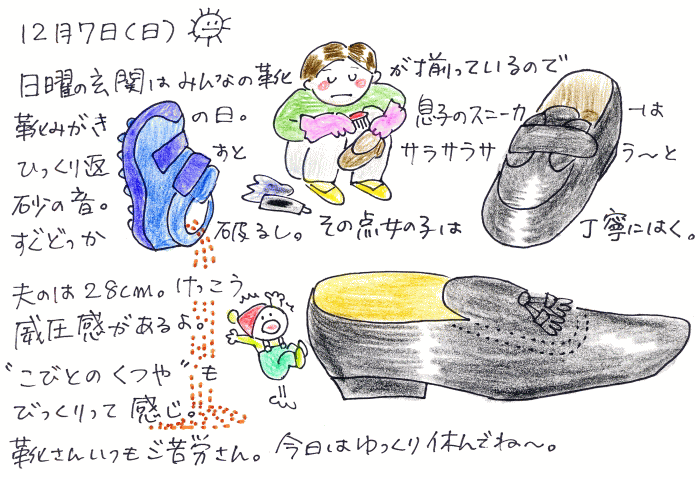 12月7日(日)
日曜の玄関はみんなの靴が揃っているので
靴みがきの日。息子のスニーカーは
ひっくり返すあとサラサラサラ〜と
砂の音。
すぐどっか破るし。その点女の子は丁寧にはく。
夫のは28cm。けっこう
威圧感があるよ。
"こびとのくつや"も
びっくりって感じ。
靴さんいつもご苦労さん。今日はゆっくり休んでね〜。